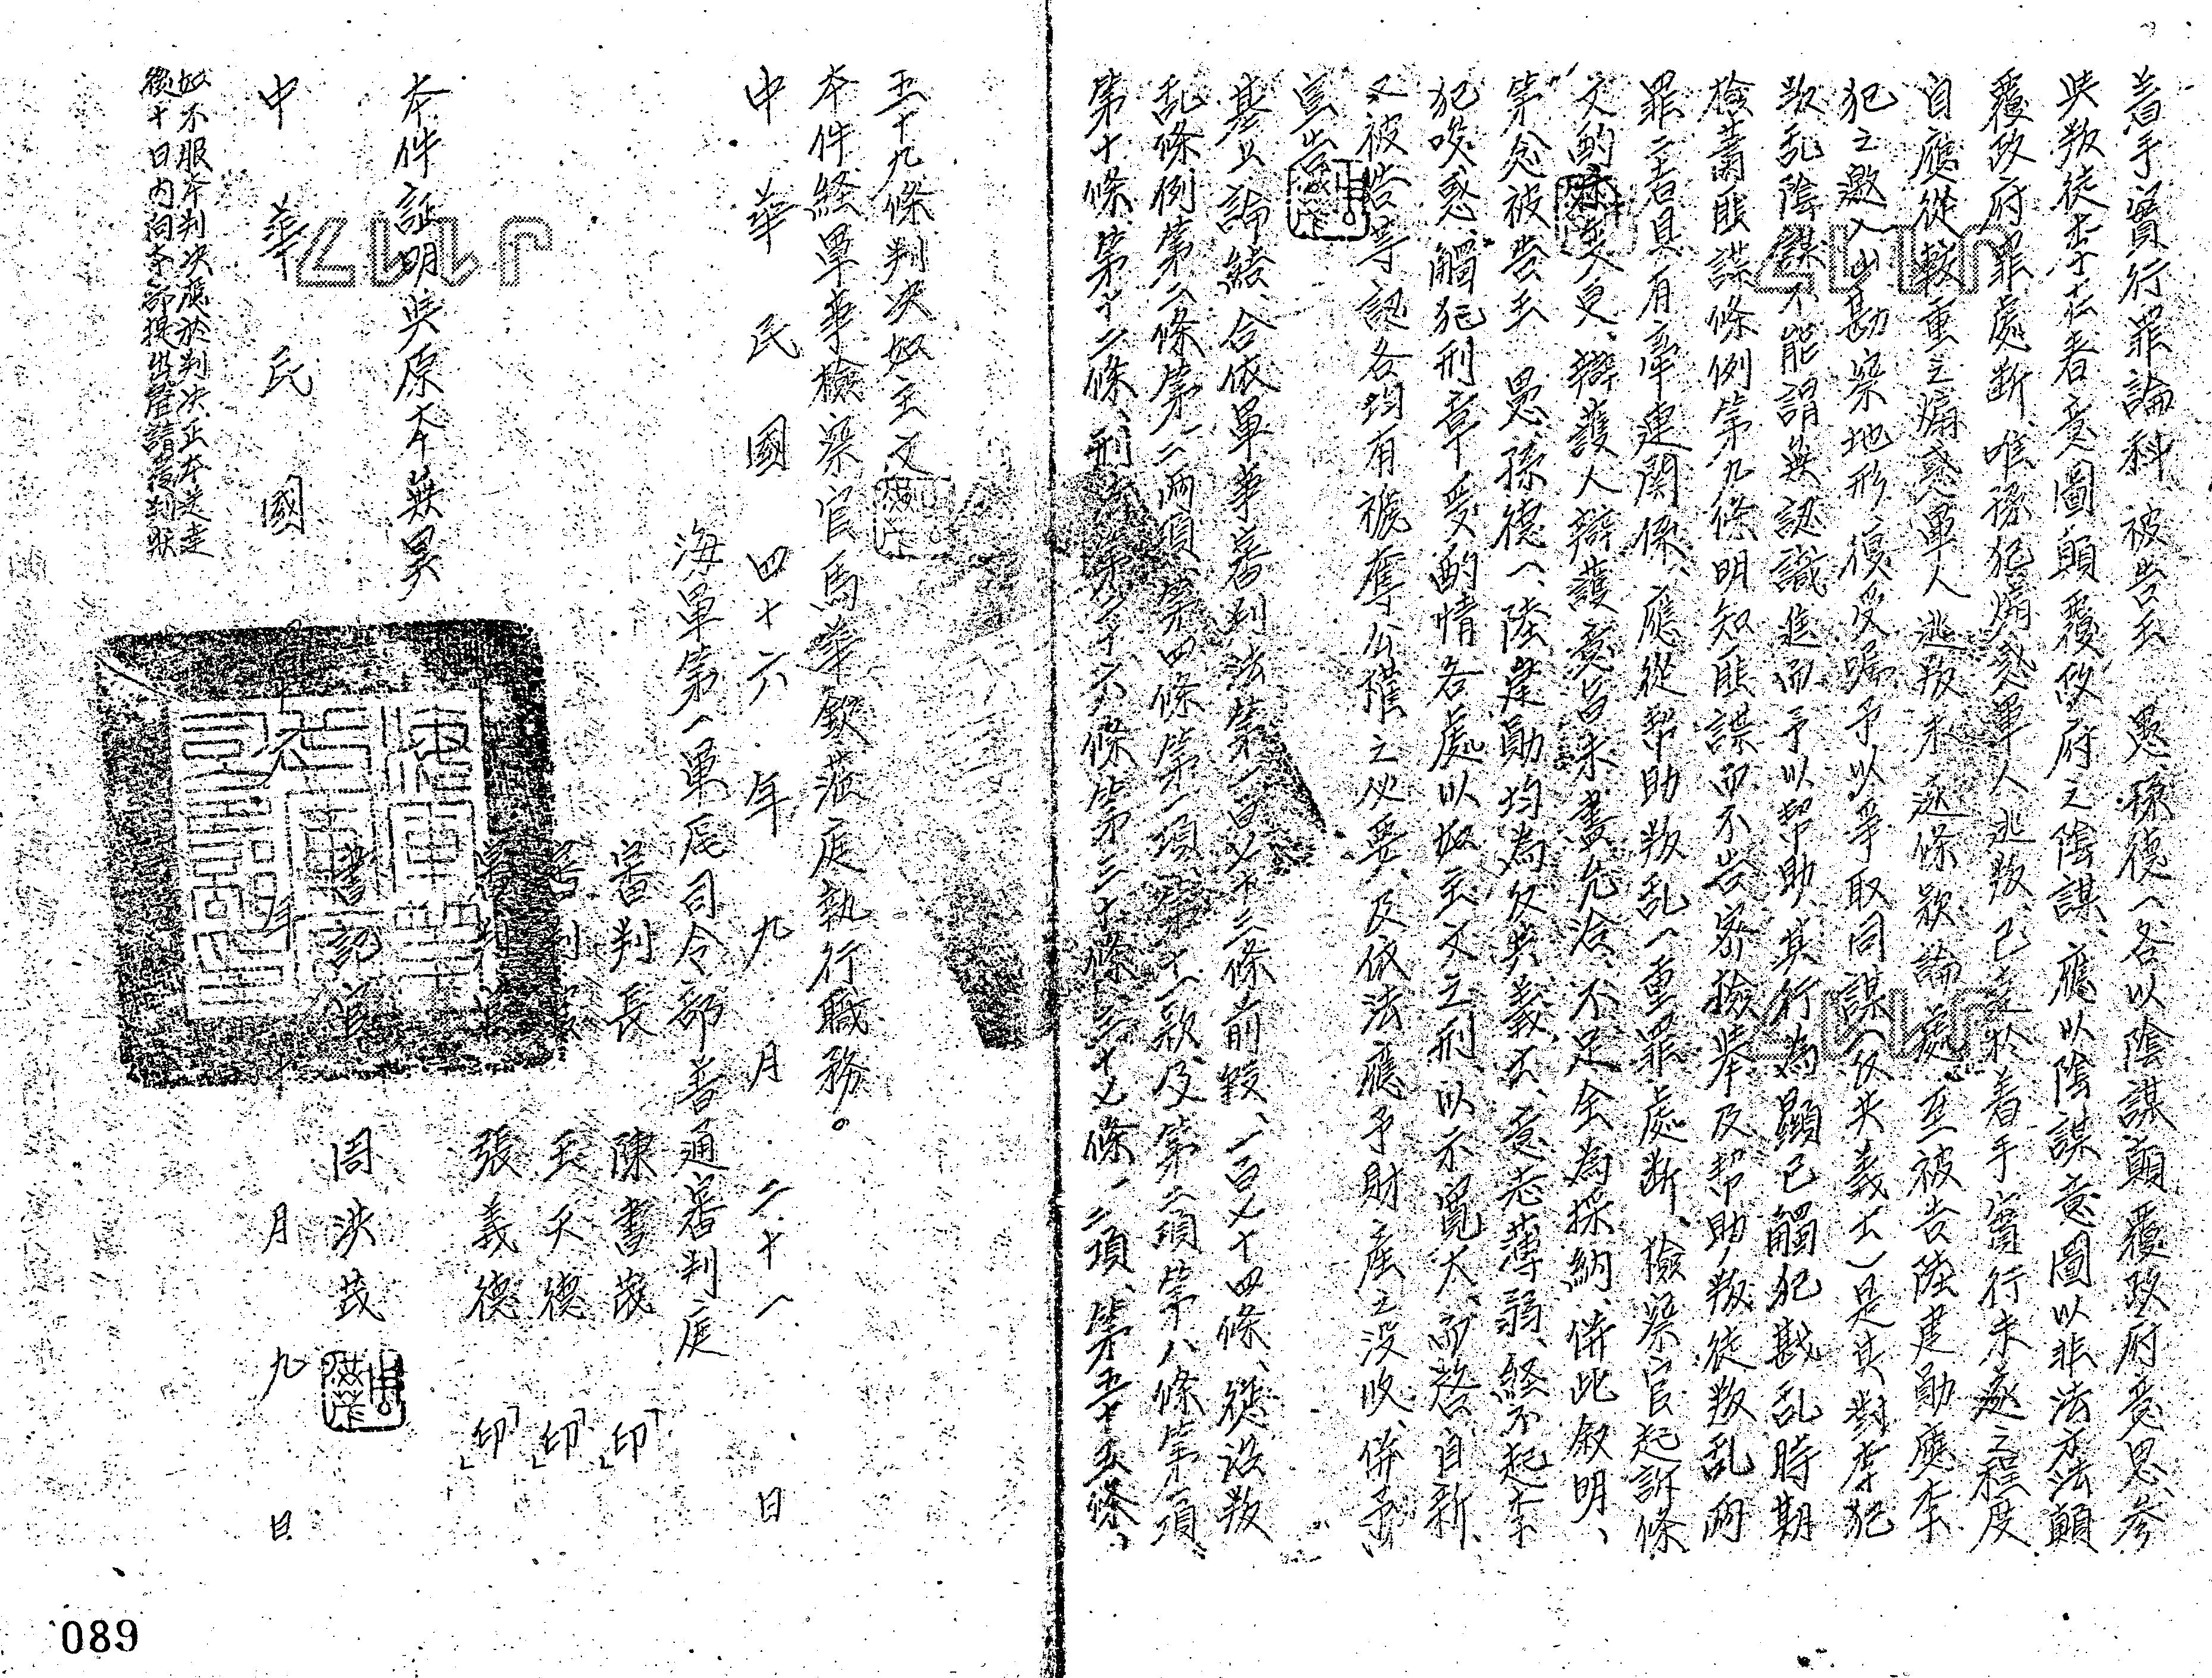 着手實行罪論科、被告王 愚、孫德一各以陰謀顛覆政府意思、參
與叛徒李在春意圖顛覆政府之陰謀、應以陰謀意圖以非法方法顛
覆政府罪處斷、唯孫犯煽惑軍人逃叛、已達於着手實行未遂之程度
自應從較重之煽惑軍人逃叛未遂條款論處、至被告陸建勛應李
犯之邀入山勘察地形、復受囑予以爭取同謀(仅失義士)是其對李犯
叛乱陰謀不能謂無認識進而予以幫助、其行為顯已觸犯戡乱時期
檢肅匪諜條例第九條明知匪諜而不告密檢舉及幫助叛徒叛乱兩
罪二者具有牽連関係、應從幫助叛乱一重罪處断、檢察官起訴條
文的 辯護人辯護意旨未盡允洽、不足全為採納、併此敘明、
第念被告王 愚、孫德一、陸建勛均為反共義士、意志薄弱、経不起李
犯唆惑、觸犯刑章、爰酌情各處以如主文之刑、以示寬大、而啓自新、
又被告等認各均有褫奪公權之必要、及依法應予財產之沒收、併予
宣告
基上論結、合依軍事審判法第一百七十三條前段、一百七十四條、懲治叛
乱條例第二條第一二兩項、第四條第一項、第十一款、及第二項第八條第一項
第十條、第十二條、刑法第二十六條第三十條、三十七條一二項、第五十五條、
五十九條判決如主文
本件経軍事檢察官馬華欽蒞庭執行職務。
中華民國四十六年九月二十一日
海軍第一軍區司令部普通審判庭
審判長 陳書茂 「印」
審判官 王天德 「印」
審判官 張義德 「印」
本件証明與原本無異
書記官 周洪茂
中華民國 年 月 九 日
如不服本判決應於判決正本送達
後十日內向本部提出聲請覆判狀
089